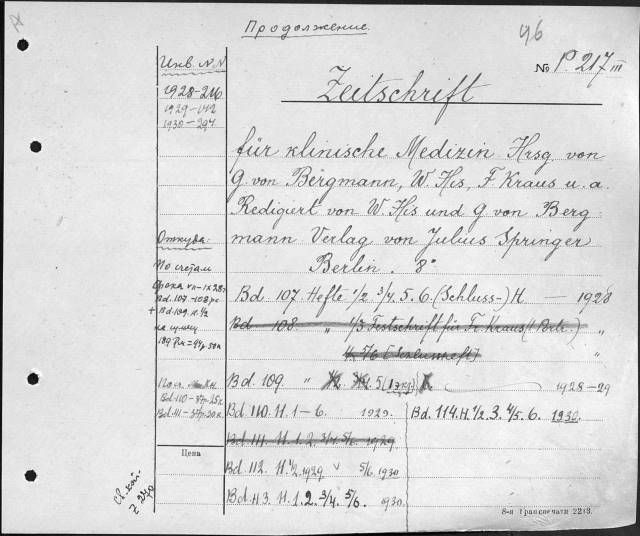 Продолжение
96
№ P. 217 III
Инв. №№
1928-216
1929-142
1930-294
Zeitschrift
für klinische Medizin Hrsg. von
G. von Bergmann, W. His, F. Kraus u. a.
Redigiert von W. His und G. von Berg-
mann Verlag von Julius Springer
Berlin. 8°
Откуда:
По счетам
Bd. 107-108
+ Bd. 109. H. 1/2
Bd. 107. Hefte 1/2 3/4. 5. 6. (Schluss-) H. — 1928
Bd. 108. " 1/3 Festschrift für Fr. Kraus "
4. 5/6 (Schlussheft) "
Bd. 109. " 5 (1 экз.) 1928-29
Bd. 110-37р.25к
Bd. 111-37р.20к.
Bd. 110. H. 1-6. 1929.
Bd. 114. H. 1/2. 3. 4/5. 6. 1930.
Bd. 111. H. 1. 2. 3/4. 5/6. 1929
Цена
Bd. 112. H. 1/2. 1929. v 5/6. 1930
Bd. 113. H. 1. 2. 3/4. 5/6. 1930.
8-я Транспечати 2213.